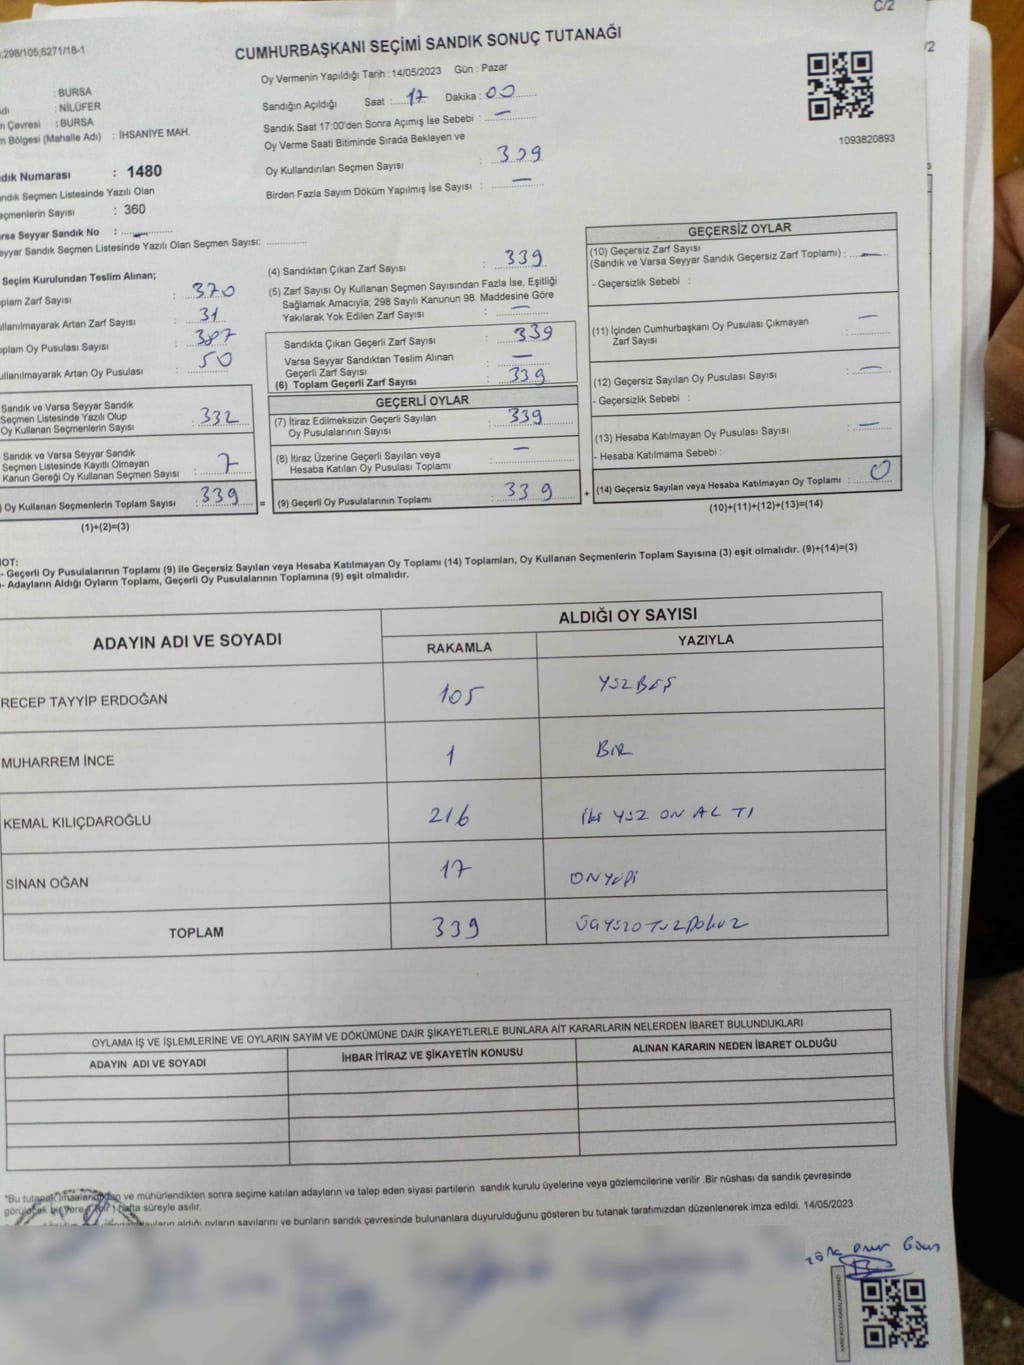 C/2
:298/105;6271/18-1
CUMHURBAŞKANI SEÇİMİ SANDIK SONUÇ TUTANAĞI
/2
Oy Vermenin Yapıldığı Tarih : 14/05/2023 Gün : Pazar
: BURSA
: NİLÜFER
Çevresi : BURSA
Bölgesi (Mahalle Adı) : İHSANİYE MAH.
Sandığın Açıldığı Saat : 17 Dakika : 00
Sandık Saat 17:00'den Sonra Açımış İse Sebebi : —
Oy Verme Saati Bitiminde Sırada Bekleyen ve
Oy Kullandırılan Seçmen Sayısı : 339
Birden Fazla Sayım Döküm Yapılmış İse Sayısı : —
1093820893
Numarası : 1480
Seçmen Listesinde Yazılı Olan
Sayısı : 360
Seyyar Sandık No : —
Sandık Seçmen Listesinde Yazılı Olan Seçmen Sayısı:
Seçim Kurulundan Teslim Alınan;
Zarf Sayısı : 370
Artan Zarf Sayısı : 31
Oy Pusulası Sayısı : 387
Artan Oy Pusulası : 50
Sandık ve Varsa Seyyar Sandık
Seçmen Listesinde Yazılı Olup
Oy Kullanan Seçmenlerin Sayısı : 332
Sandık ve Varsa Seyyar Sandık
Seçmen Listesinde Kayıtlı Olmayan
Kanun Gereği Oy Kullanan Seçmen Sayısı : 7
Oy Kullanan Seçmenlerin Toplam Sayısı : 339 =
(1)+(2)=(3)
(4) Sandıktan Çıkan Zarf Sayısı : 339
(5) Zarf Sayısı Oy Kullanan Seçmen Sayısından Fazla İse, Eşitliği
Sağlamak Amacıyla; 298 Sayılı Kanunun 98. Maddesine Göre
Yakılarak Yok Edilen Zarf Sayısı : —
Sandıkta Çıkan Geçerli Zarf Sayısı : 339
Varsa Seyyar Sandıktan Teslim Alınan
Geçerli Zarf Sayısı : —
(6) Toplam Geçerli Zarf Sayısı : 339
GEÇERLİ OYLAR
(7) İtiraz Edilmeksizin Geçerli Sayılan
Oy Pusulalarının Sayısı : 339
(8) İtiraz Üzerine Geçerli Sayılan veya
Hesaba Katılan Oy Pusulası Toplamı : —
(9) Geçerli Oy Pusulalarının Toplamı : 339 +
GEÇERSİZ OYLAR
(10) Geçersiz Zarf Sayısı
(Sandık ve Varsa Seyyar Sandık Geçersiz Zarf Toplamı) : —
- Geçersizlik Sebebi :
(11) İçinden Cumhurbaşkanı Oy Pusulası Çıkmayan
Zarf Sayısı : —
(12) Geçersiz Sayılan Oy Pusulası Sayısı : —
- Geçersizlik Sebebi :
(13) Hesaba Katılmayan Oy Pusulası Sayısı : —
- Hesaba Katılmama Sebebi :
(14) Geçersiz Sayılan veya Hesaba Katılmayan Oy Toplamı : 0
(10)+(11)+(12)+(13)=(14)
- Geçerli Oy Pusulalarının Toplamı (9) ile Geçersiz Sayılan veya Hesaba Katılmayan Oy Toplamı (14) Toplamları, Oy Kullanan Seçmenlerin Toplam Sayısına (3) eşit olmalıdır. (9)+(14)=(3)
- Adayların Aldığı Oyların Toplamı, Geçerli Oy Pusulalarının Toplamına (9) eşit olmalıdır.
ADAYIN ADI VE SOYADI
ALDIĞI OY SAYISI
RAKAMLA YAZIYLA
RECEP TAYYİP ERDOĞAN 105 YÜZBEŞ
MUHARREM İNCE 1 BİR
KEMAL KILIÇDAROĞLU 216 İki YÜZ ON ALTI
SİNAN OĞAN 17 ONYEDİ
TOPLAM 339 ÜÇYÜZOTUZDOKUZ
OYLAMA İŞ VE İŞLEMLERİNE VE OYLARIN SAYIM VE DÖKÜMÜNE DAİR ŞİKAYETLERLE BUNLARA AİT KARARLARIN NELERDEN İBARET BULUNDUKLARI
ADAYIN ADI VE SOYADI İHBAR İTİRAZ VE ŞİKAYETİN KONUSU ALINAN KARARIN NEDEN İBARET OLDUĞU
"Bu ve mühürlendikten sonra seçime katılan adayların ve talep eden siyasi partilerin sandık kurulu üyelerine veya gözlemcilerine verilir .Bir nüshası da sandık çevresinde
hafta süreyle asılır.
aldığı oyların sayılarını ve bunların sandık çevresinde bulunanlara duyurulduğunu gösteren bu tutanak tarafımızdan düzenlenerek imza edildi. 14/05/2023